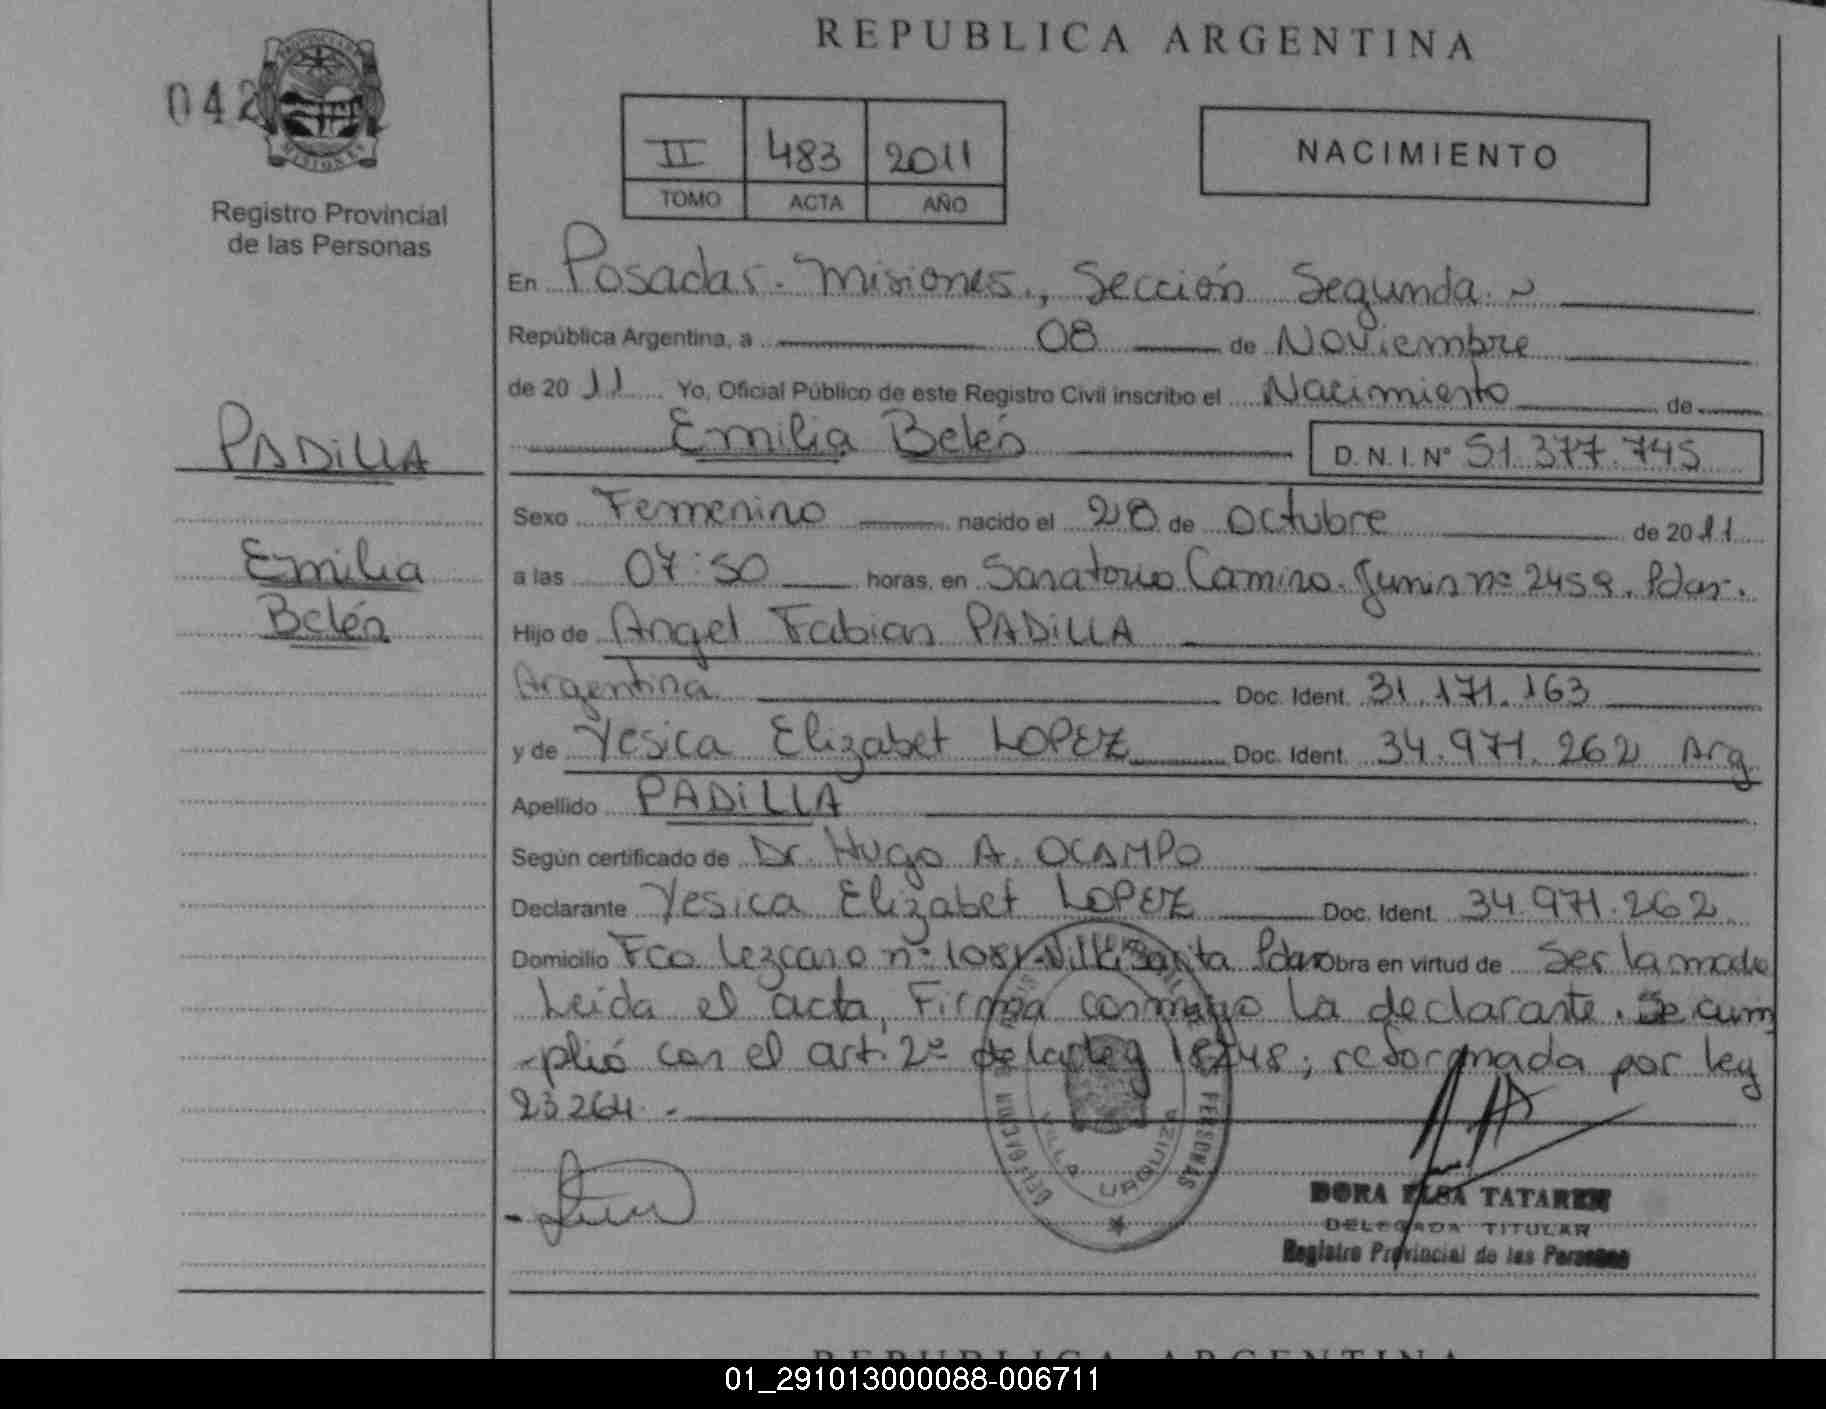 REPUBLICA ARGENTINA
042
PROVINCIA DE
MISIONES
Registro Provincial
de las Personas
II 483 2011
TOMO ACTA AÑO
NACIMIENTO
En Posadas - Misiones, Sección Segunda.
República Argentina, a 08 de Noviembre
de 20 11 Yo, Oficial Público de este Registro Civil inscribo el Nacimiento de
Emilia Belén D.N.I. N° 51.377.745
PADiLLA
Emilia
Belén
Sexo Femenino nacido el 28 de Octubre de 20 11
a las 07:50 horas, en Sanatorio Camino. Junin nº 2459. Pdas.
Hijo de Angel Fabian PADiLLA
Argentina Doc. Ident. 31.171.163
y de Yesica Elizabet LOPEZ Doc. Ident. 34.971.262 Arg
Apellido PADiLLA
Según certificado de Dr. Hugo A. OCAMPO
Declarante Yesica Elizabet LOPEZ Doc. Ident. 34.971.262
Domicilio Fco Lezcano nº 1081 Pdas Obra en virtud de Ser la madre
Leida el acta, Firma conmigo la declarante. Se cum
-plió con el art. 2º de la Ley 18248; reformada por ley
23264.-
PERSONAS
VILLA URQUIZA
DORA ELSA TATAREN
DELEGADA TITULAR
Registro Provincial de las Personas
REPUBLICA ARGENTINA
01_291013000088-006711